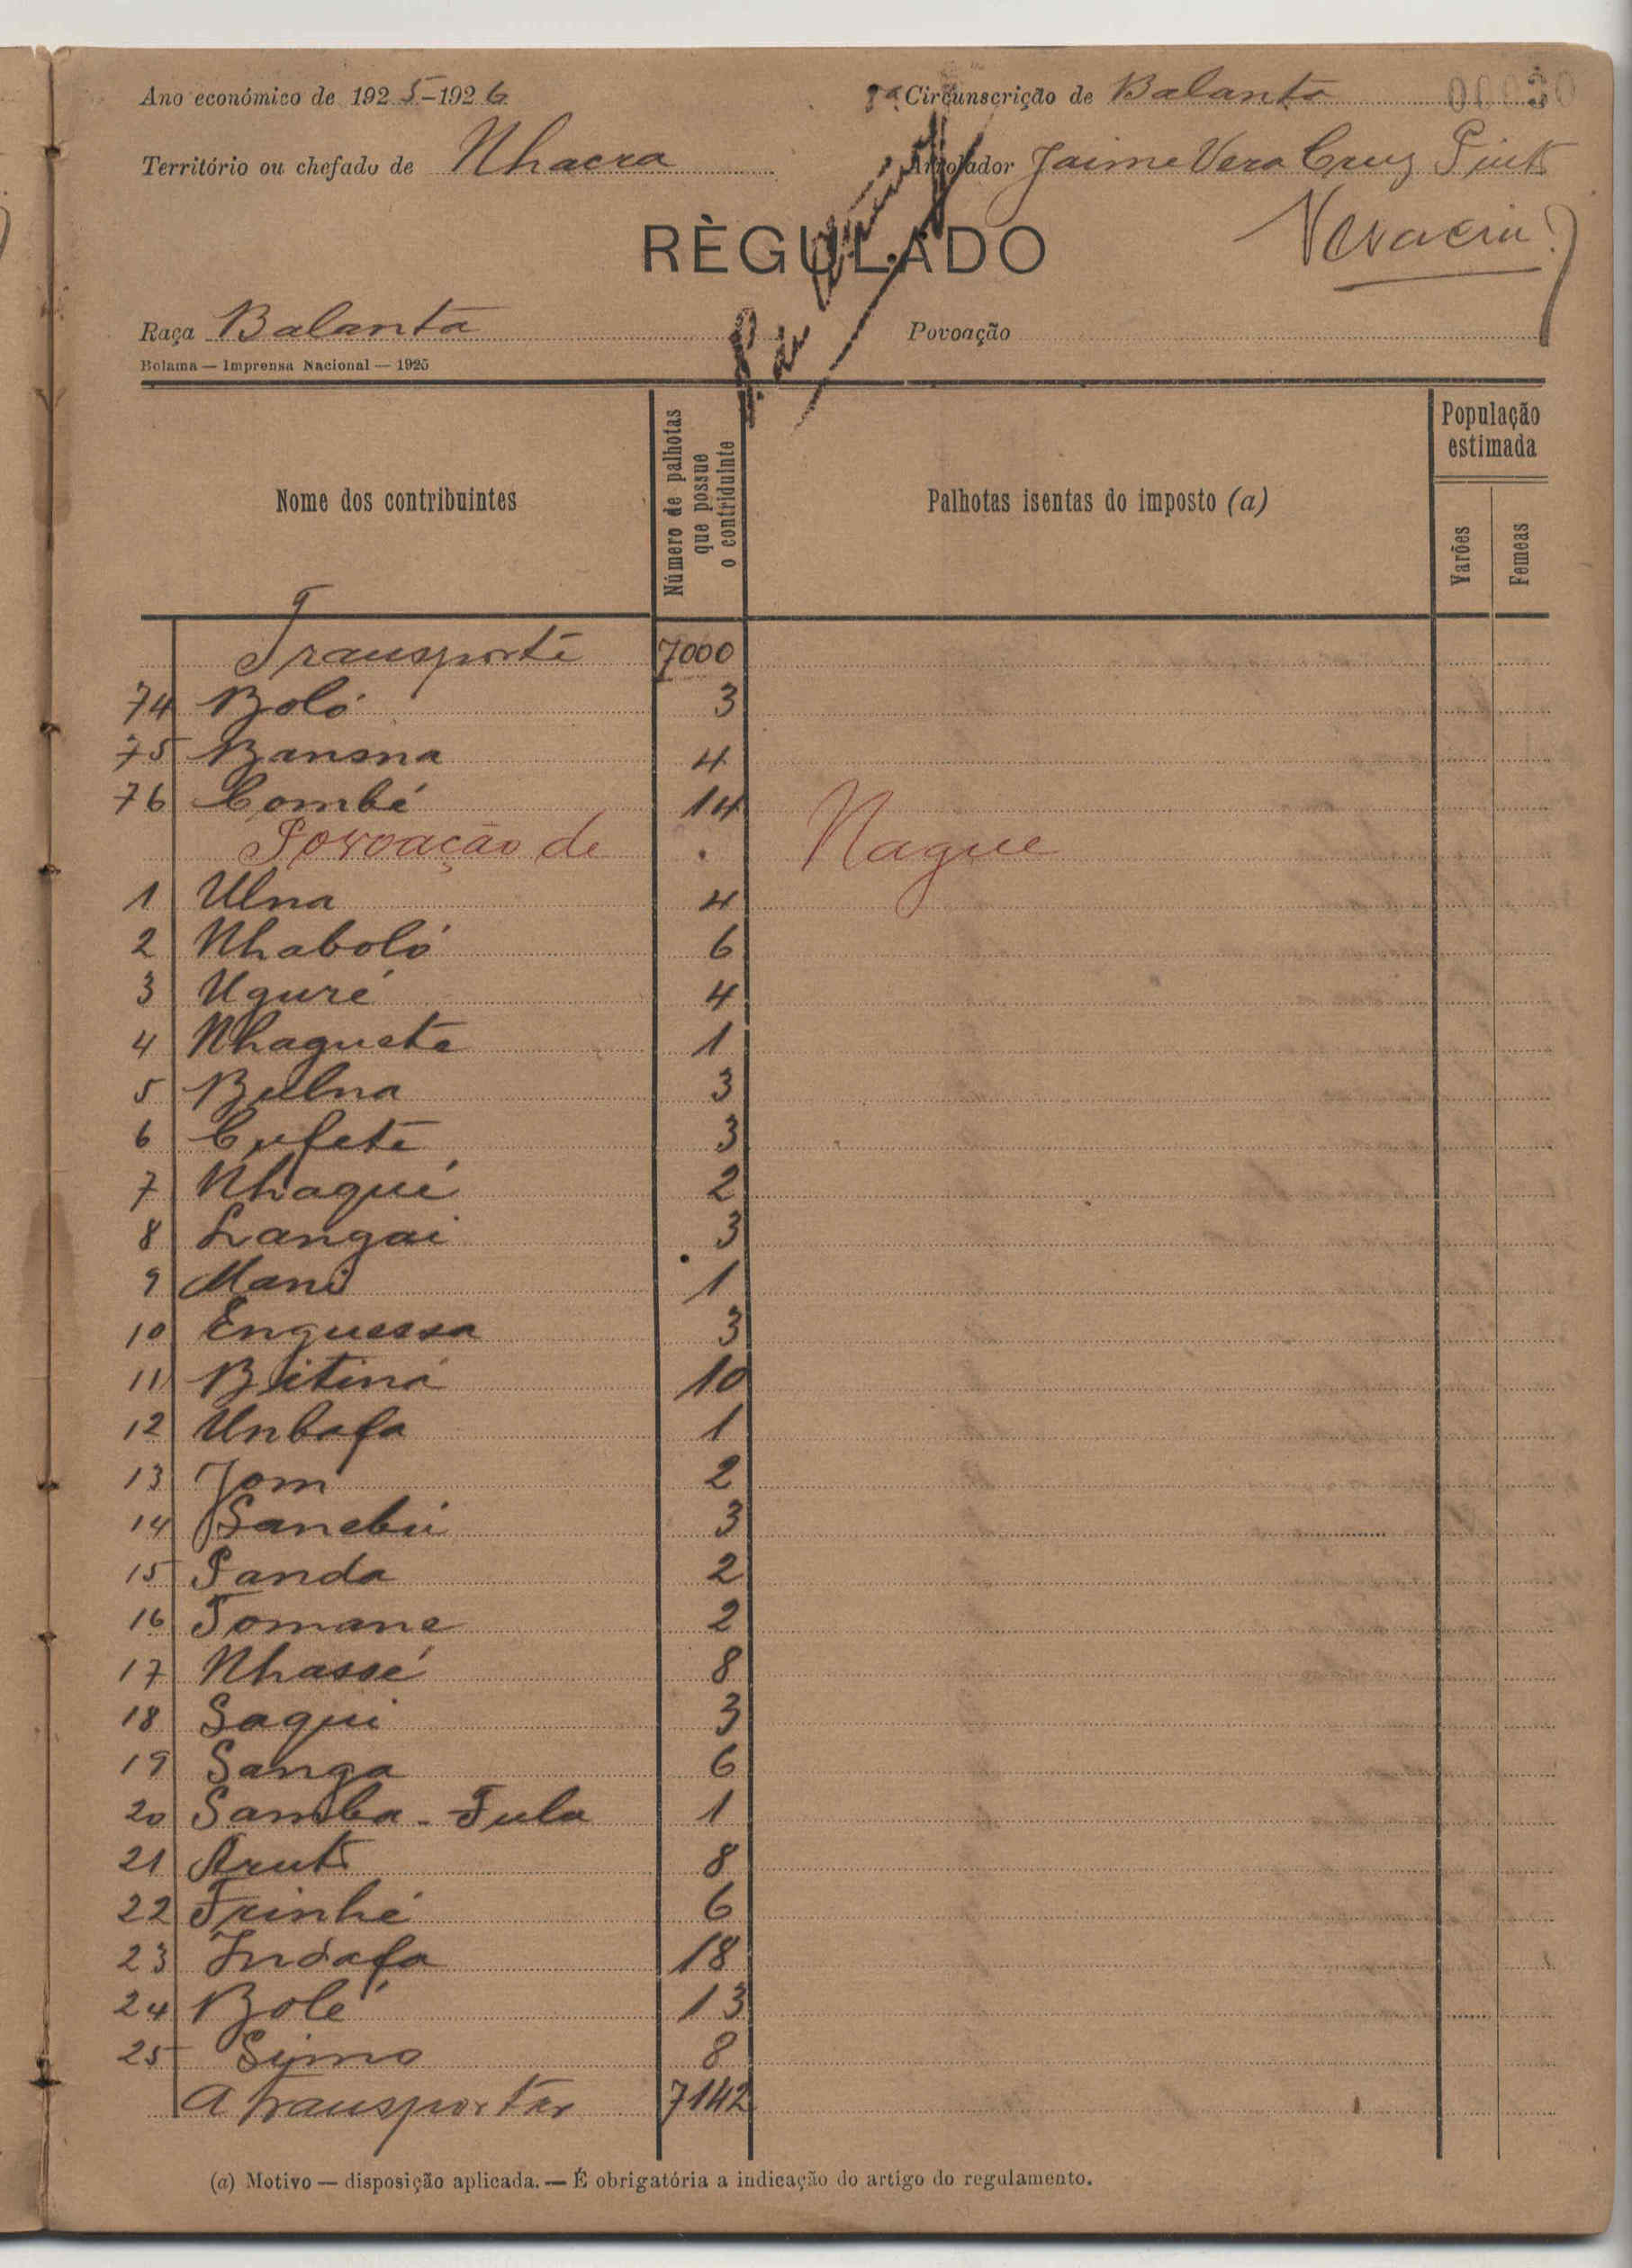 Ano económico de 1925-1926
8ª Circunscrição de Balanta
Território ou chefado de Nhacra
Arrolador Jaime Vera Cruz Pinto
RÈGULADO
Raça Balanta
Povoação
Bolama — Imprensa Nacional — 1925
Nome dos contribuintes
Número de palhotas que possue o contriduinte
Palhotas isentas do imposto (a)
População estimada
Varões
Femeas
Transporte 7000
74 Boló 3
75 Bansna 4
76 Combé 14
Povoação de Nague
1 Ulna 4
2 Nhaboló 6
3 Uguré 4
4 Nhaguete 1
5 Bulna 3
6 Cufete 3
7 Nhaqui 2
8 Langai 3
9 Mani 1
10 Enguessa 3
11 Bitiná 10
12 Unbafa 1
13 Jom 2
14 Sanebú 3
15 Panda 2
16 Tomane 2
17 Nhassé 8
18 Saqui 3
19 Sanga 6
20 Samba - Fula 1
21 Aruts 8
22 Frinhé 6
23 Indafa 18
24 Bolé 13
25 Simo 8
A transportar 7142
(a) Motivo — disposição aplicada. — É obrigatória a indicação do artigo do regulamento.